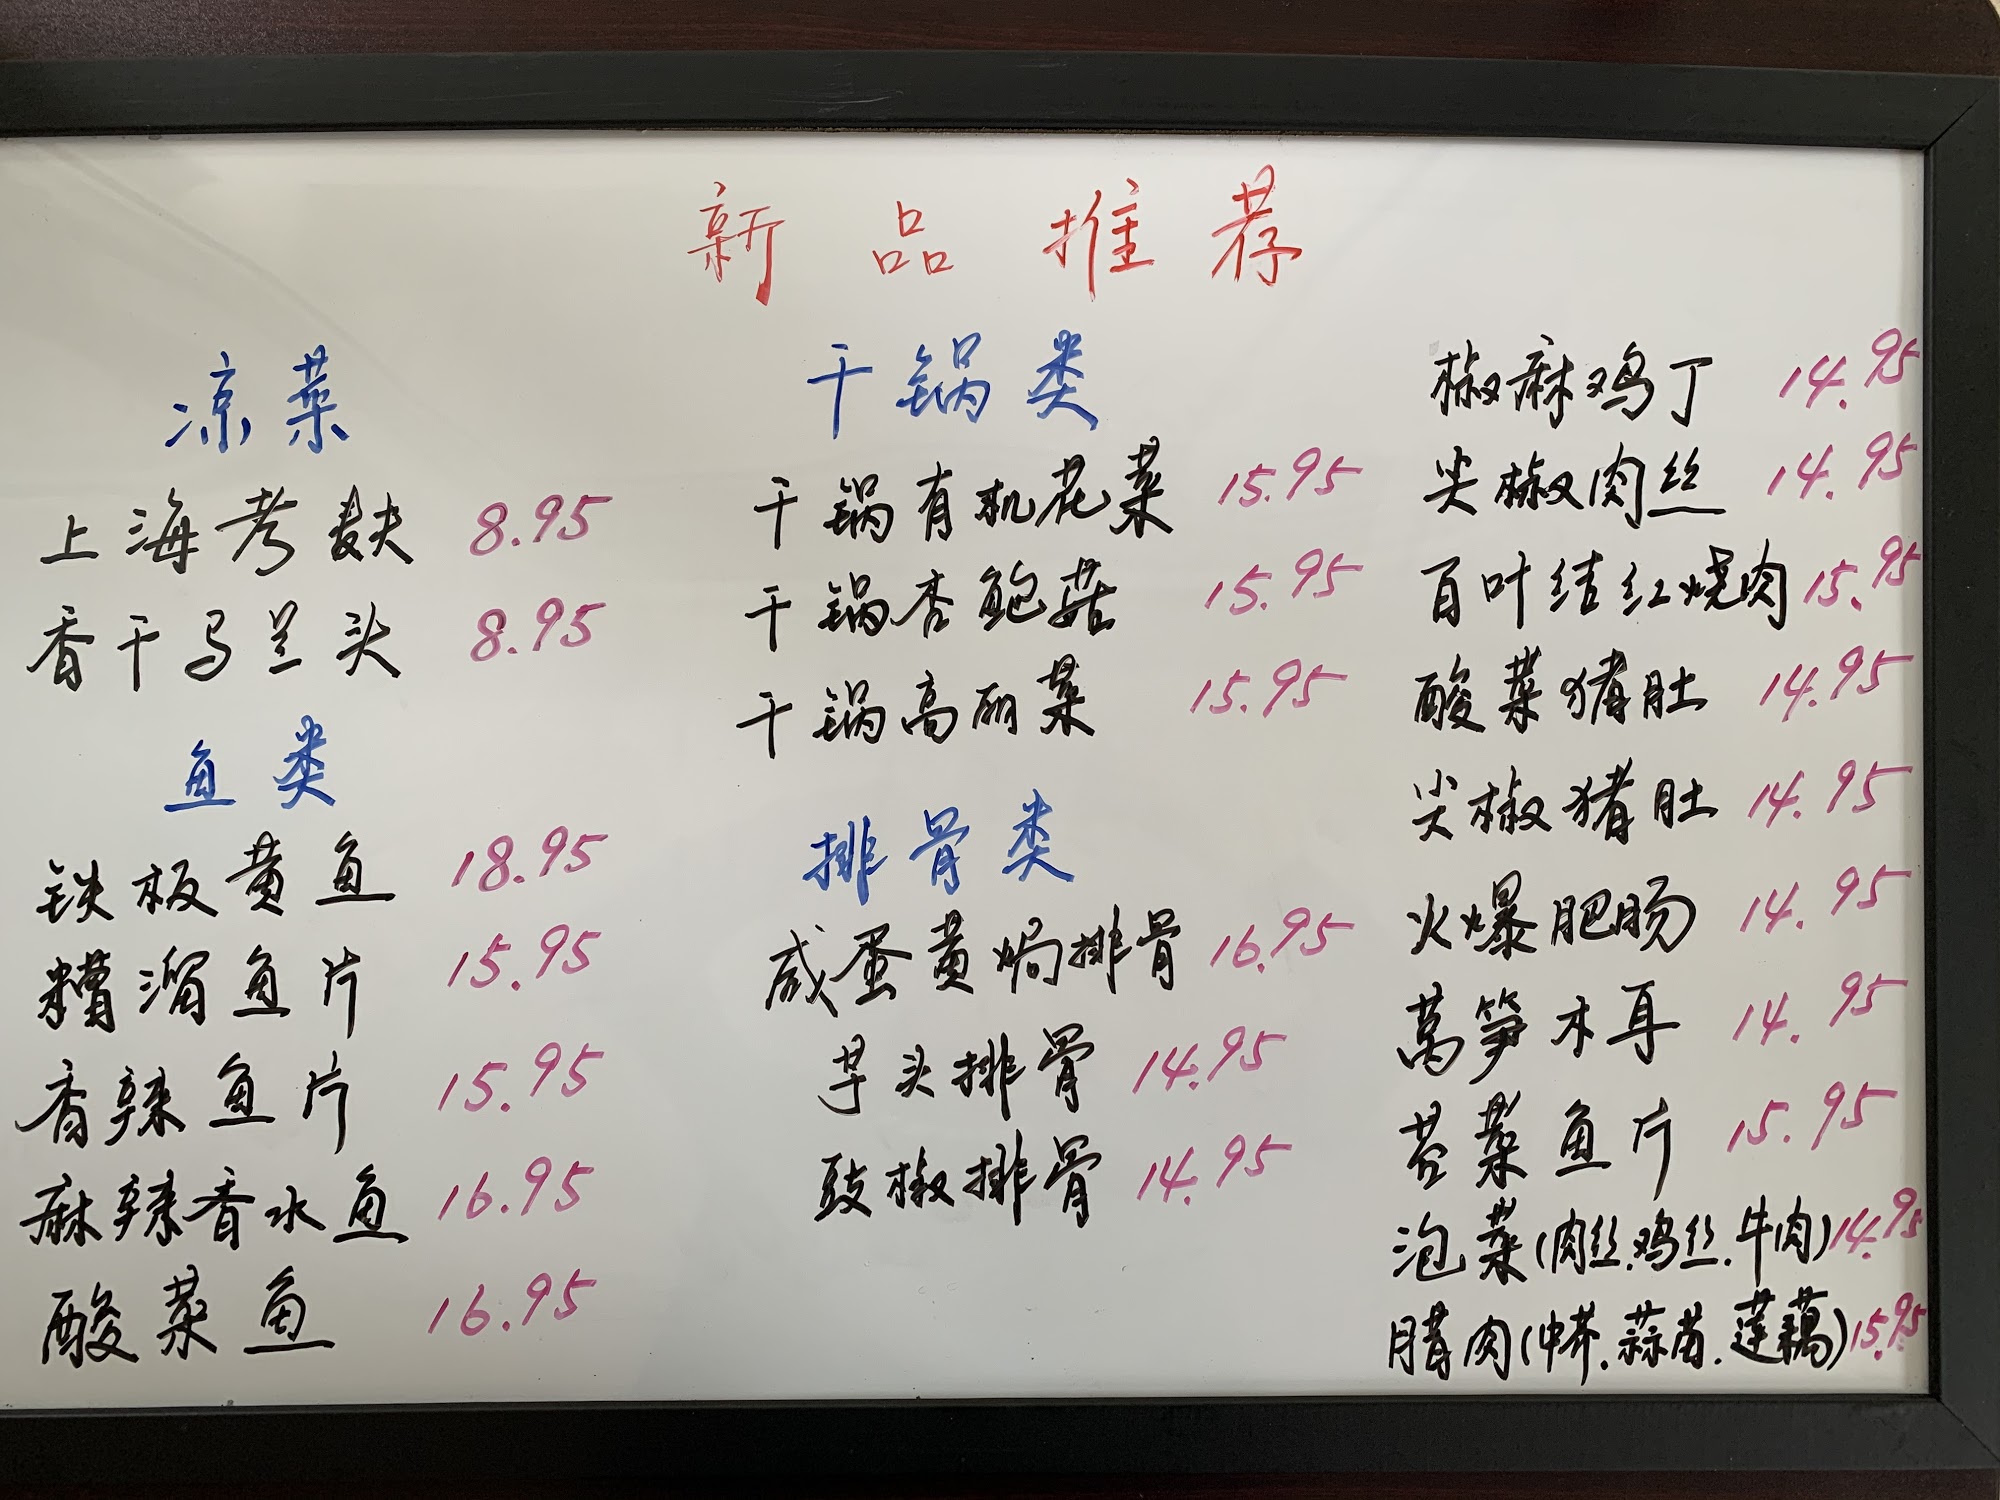 新品推荐
凉菜
上海考麸 8.95
香干马兰头 8.95
鱼类
铁板黄鱼 18.95
糟溜鱼片 15.95
香辣鱼片 15.95
麻辣香水鱼 16.95
酸菜鱼 16.95
干锅类
干锅有机花菜 15.95
干锅杏鲍菇 15.95
干锅高丽菜 15.95
排骨类
咸蛋黄焗排骨 16.95
芋头排骨 14.95
豉椒排骨 14.95
椒麻鸡丁 14.95
尖椒肉丝 14.95
百叶结红烧肉 15.95
酸菜猪肚 14.95
尖椒猪肚 14.95
火爆肥肠 14.95
莴笋木耳 14.95
苔菜鱼片 15.95
泡菜(肉丝.鸡丝.牛肉) 14.95
腊肉(.蒜苗.莲藕) 15.95